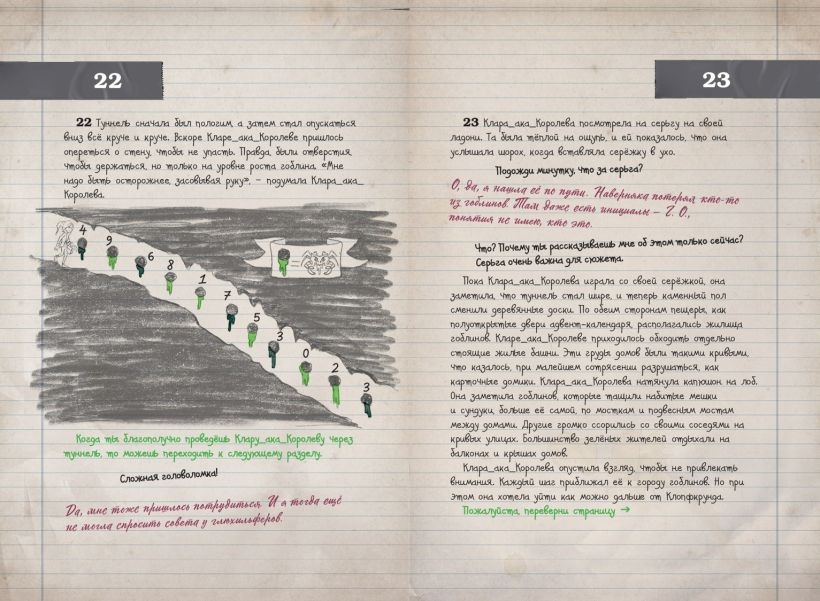 22
22 Туннель сначала был пологим, а затем стал опускаться
вниз всё круче и круче. Вскоре Кларе_ака_Королеве пришлось
опереться о стену, чтобы не упасть. Правда, были отверстия,
чтобы держаться, но только на уровне роста гоблина. «Мне
надо быть осторожнее, засовывая руку», – подумала Клара_ака_
Королева.
4
9
6
8
1
7
5
3
0
2
3
=
Когда ты благополучно проведёшь Клару_ака_Королеву через
туннель, то можешь переходить к следующему разделу.
Сложная головоломка!
Да, мне тоже пришлось потрудиться. И я тогда ещё
не могла спросить совета у глюхильферов.
23
23 Клара_ака_Королева посмотрела на серьгу на своей
ладони. Та была тёплой на ощупь, и ей показалось, что она
услышала шорох, когда вставляла серёжку в ухо.
Подожди минутку, что за серьга?
О, да, я нашла её по пути. Наверняка потерял кто-то
из гоблинов. Там даже есть инициалы – Г. О.,
понятия не имею, кто это.
Что? Почему ты рассказываешь мне об этом только сейчас?
Серьга очень важна для сюжета.
Пока Клара_ака_Королева играла со своей серёжкой, она
заметила, что туннель стал шире, и теперь каменный пол
сменили деревянные доски. По обеим сторонам пещеры, как
полуоткрытые двери адвент-календаря, располагались жилища
гоблинов. Кларе_ака_Королеве приходилось обходить отдельно
стоящие жилые башни. Эти груды домов были такими кривыми,
что казалось, при малейшем сотрясении разрушаться, как
карточные домики. Клара_ака_Королева натянула капюшон на лоб.
Она заметила гоблинов, которые тащили набитые мешки
и сундуки, больше её самой, по мосткам и подвесным мостам
между домами. Другие громко ссорились со своими соседями на
кривых улицах. Большинство зелёных жителей отдыхали на
балконах и крышах домов.
Клара_ака_Королева опустила взгляд, чтобы не привлекать
внимания. Каждый шаг приближал её к городу гоблинов. Но при
этом она хотела уйти как можно дальше от Клопфкрунда.
Пожалуйста, переверни страницу →